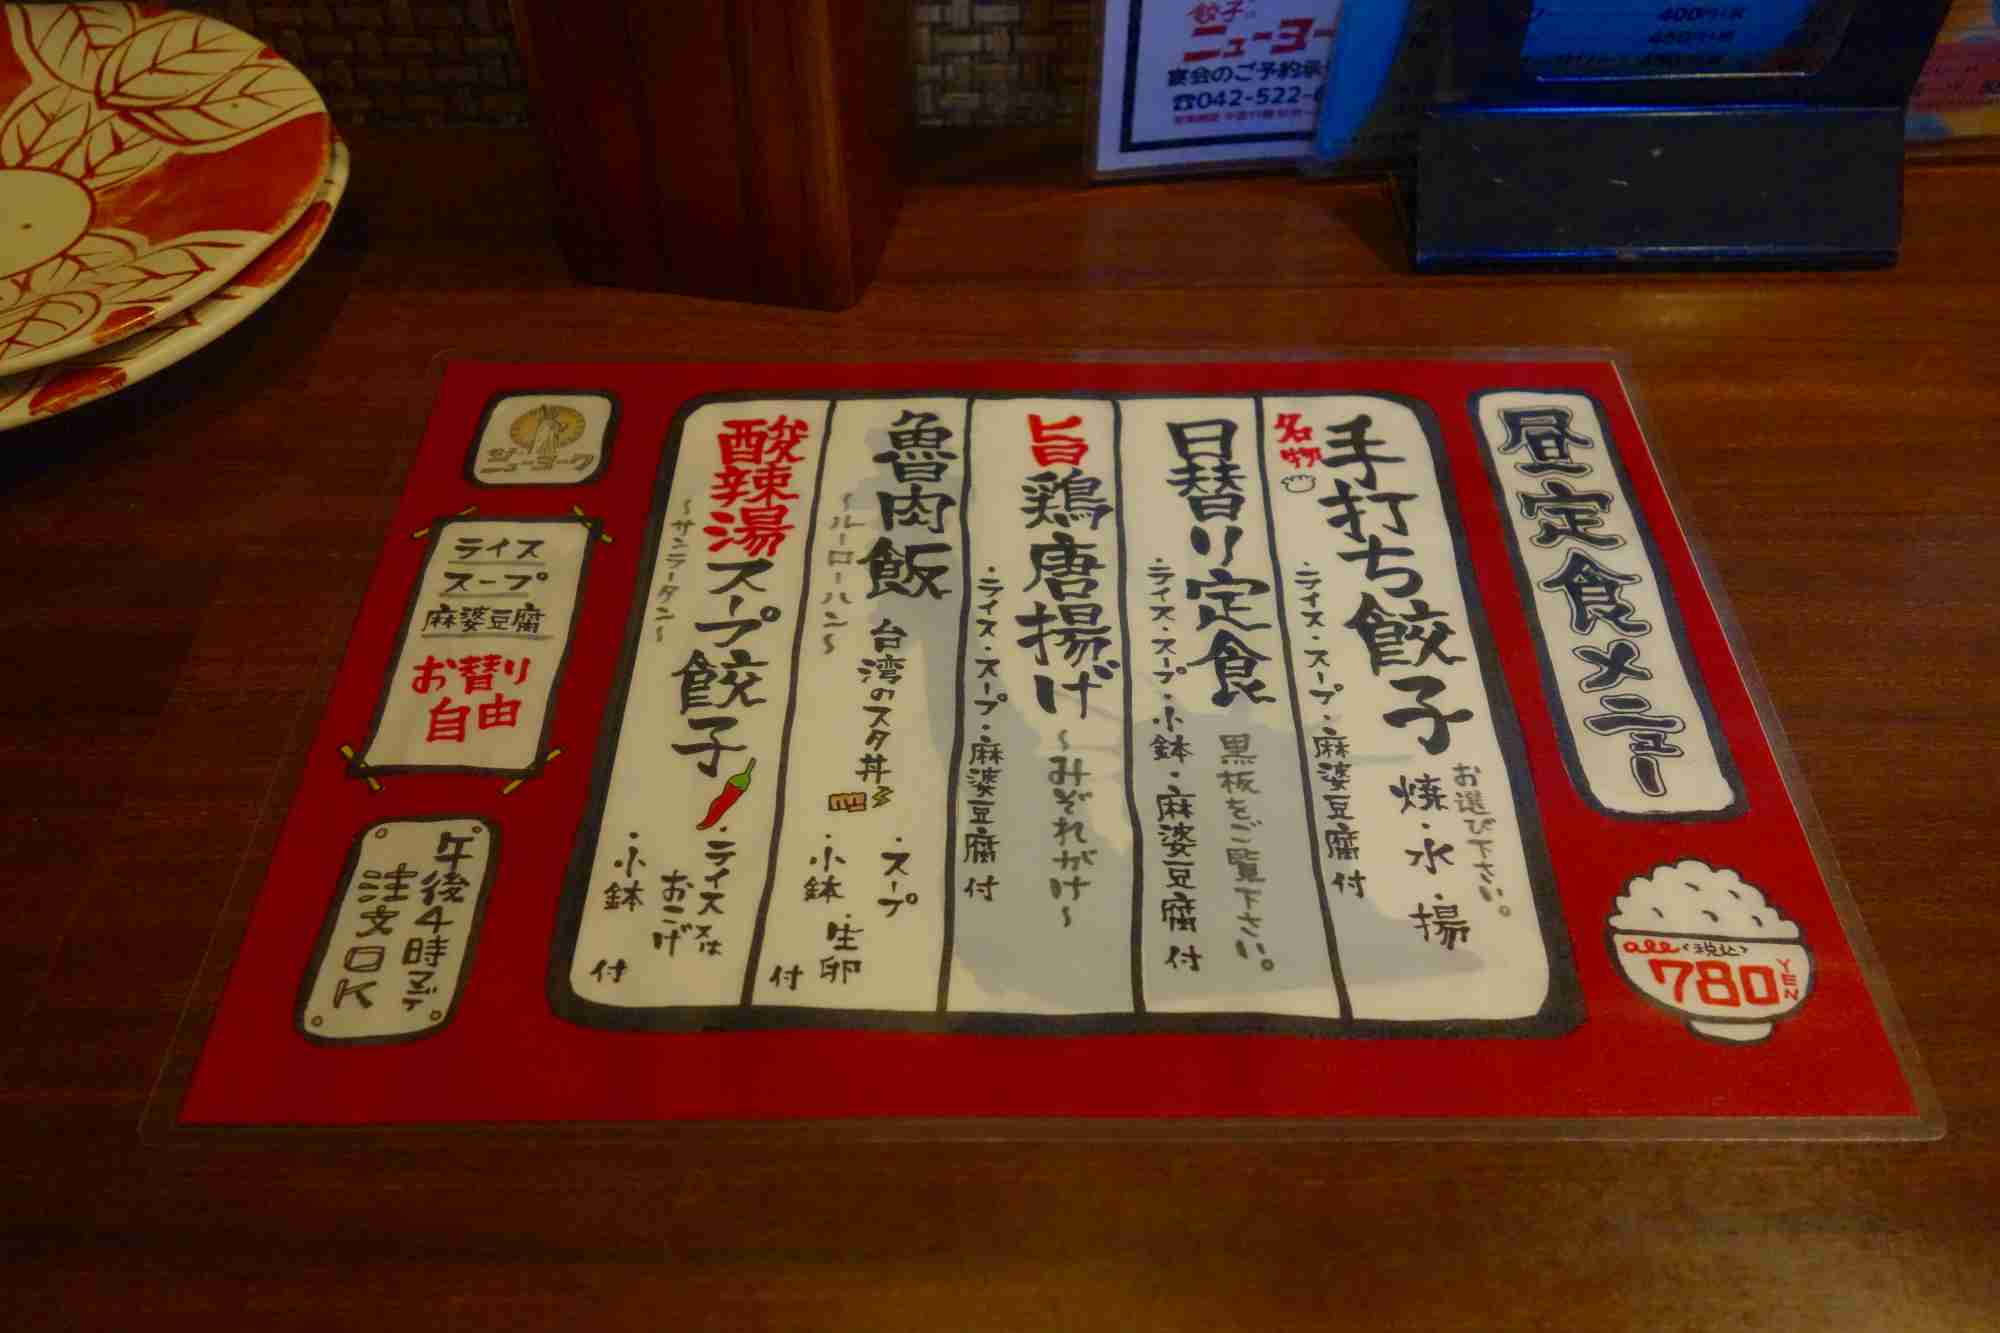 餃子
ニューヨー
宴会のご予約承
☎042-522-6
400円
450円
昼定食メニュー
all〈税込〉
780
YEN
名物
手打ち餃子
お選び下さい。
焼・水・揚
・ライス・スープ・麻婆豆腐付
日替り定食
黒板をご覧下さい。
・ライス・スープ・小鉢・麻婆豆腐付
旨鶏唐揚げ
〜みぞれがけ〜
・ライス・スープ・麻婆豆腐付
魯肉飯
〜ルーローハン〜
台湾のスタ丼
・スープ
・生卵
・小鉢
付
酸辣湯スープ餃子
〜サンラータン〜
・ライス又は
おこげ
・小鉢
付
ニューヨーク
ライス
スープ
麻婆豆腐
お替り
自由
午後4時マデ
注文OK